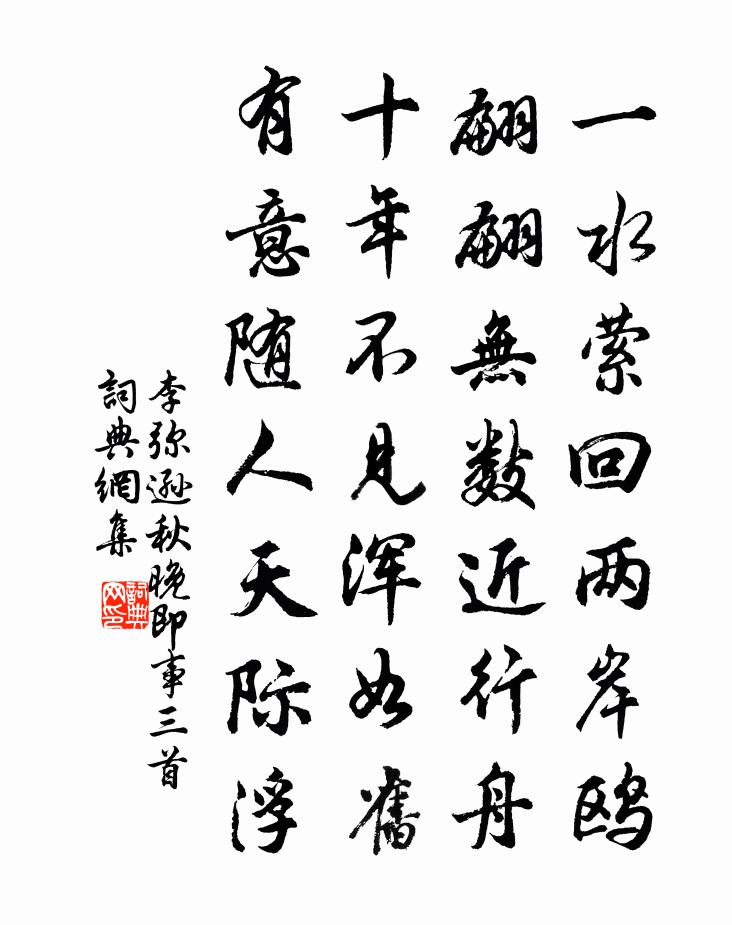 一水萦回两岸鸥
翩翩無数近行舟
十年不見浑如舊
有意随人天际浮
李弥遜秋晚即事三首
詞典網集
詞典网印